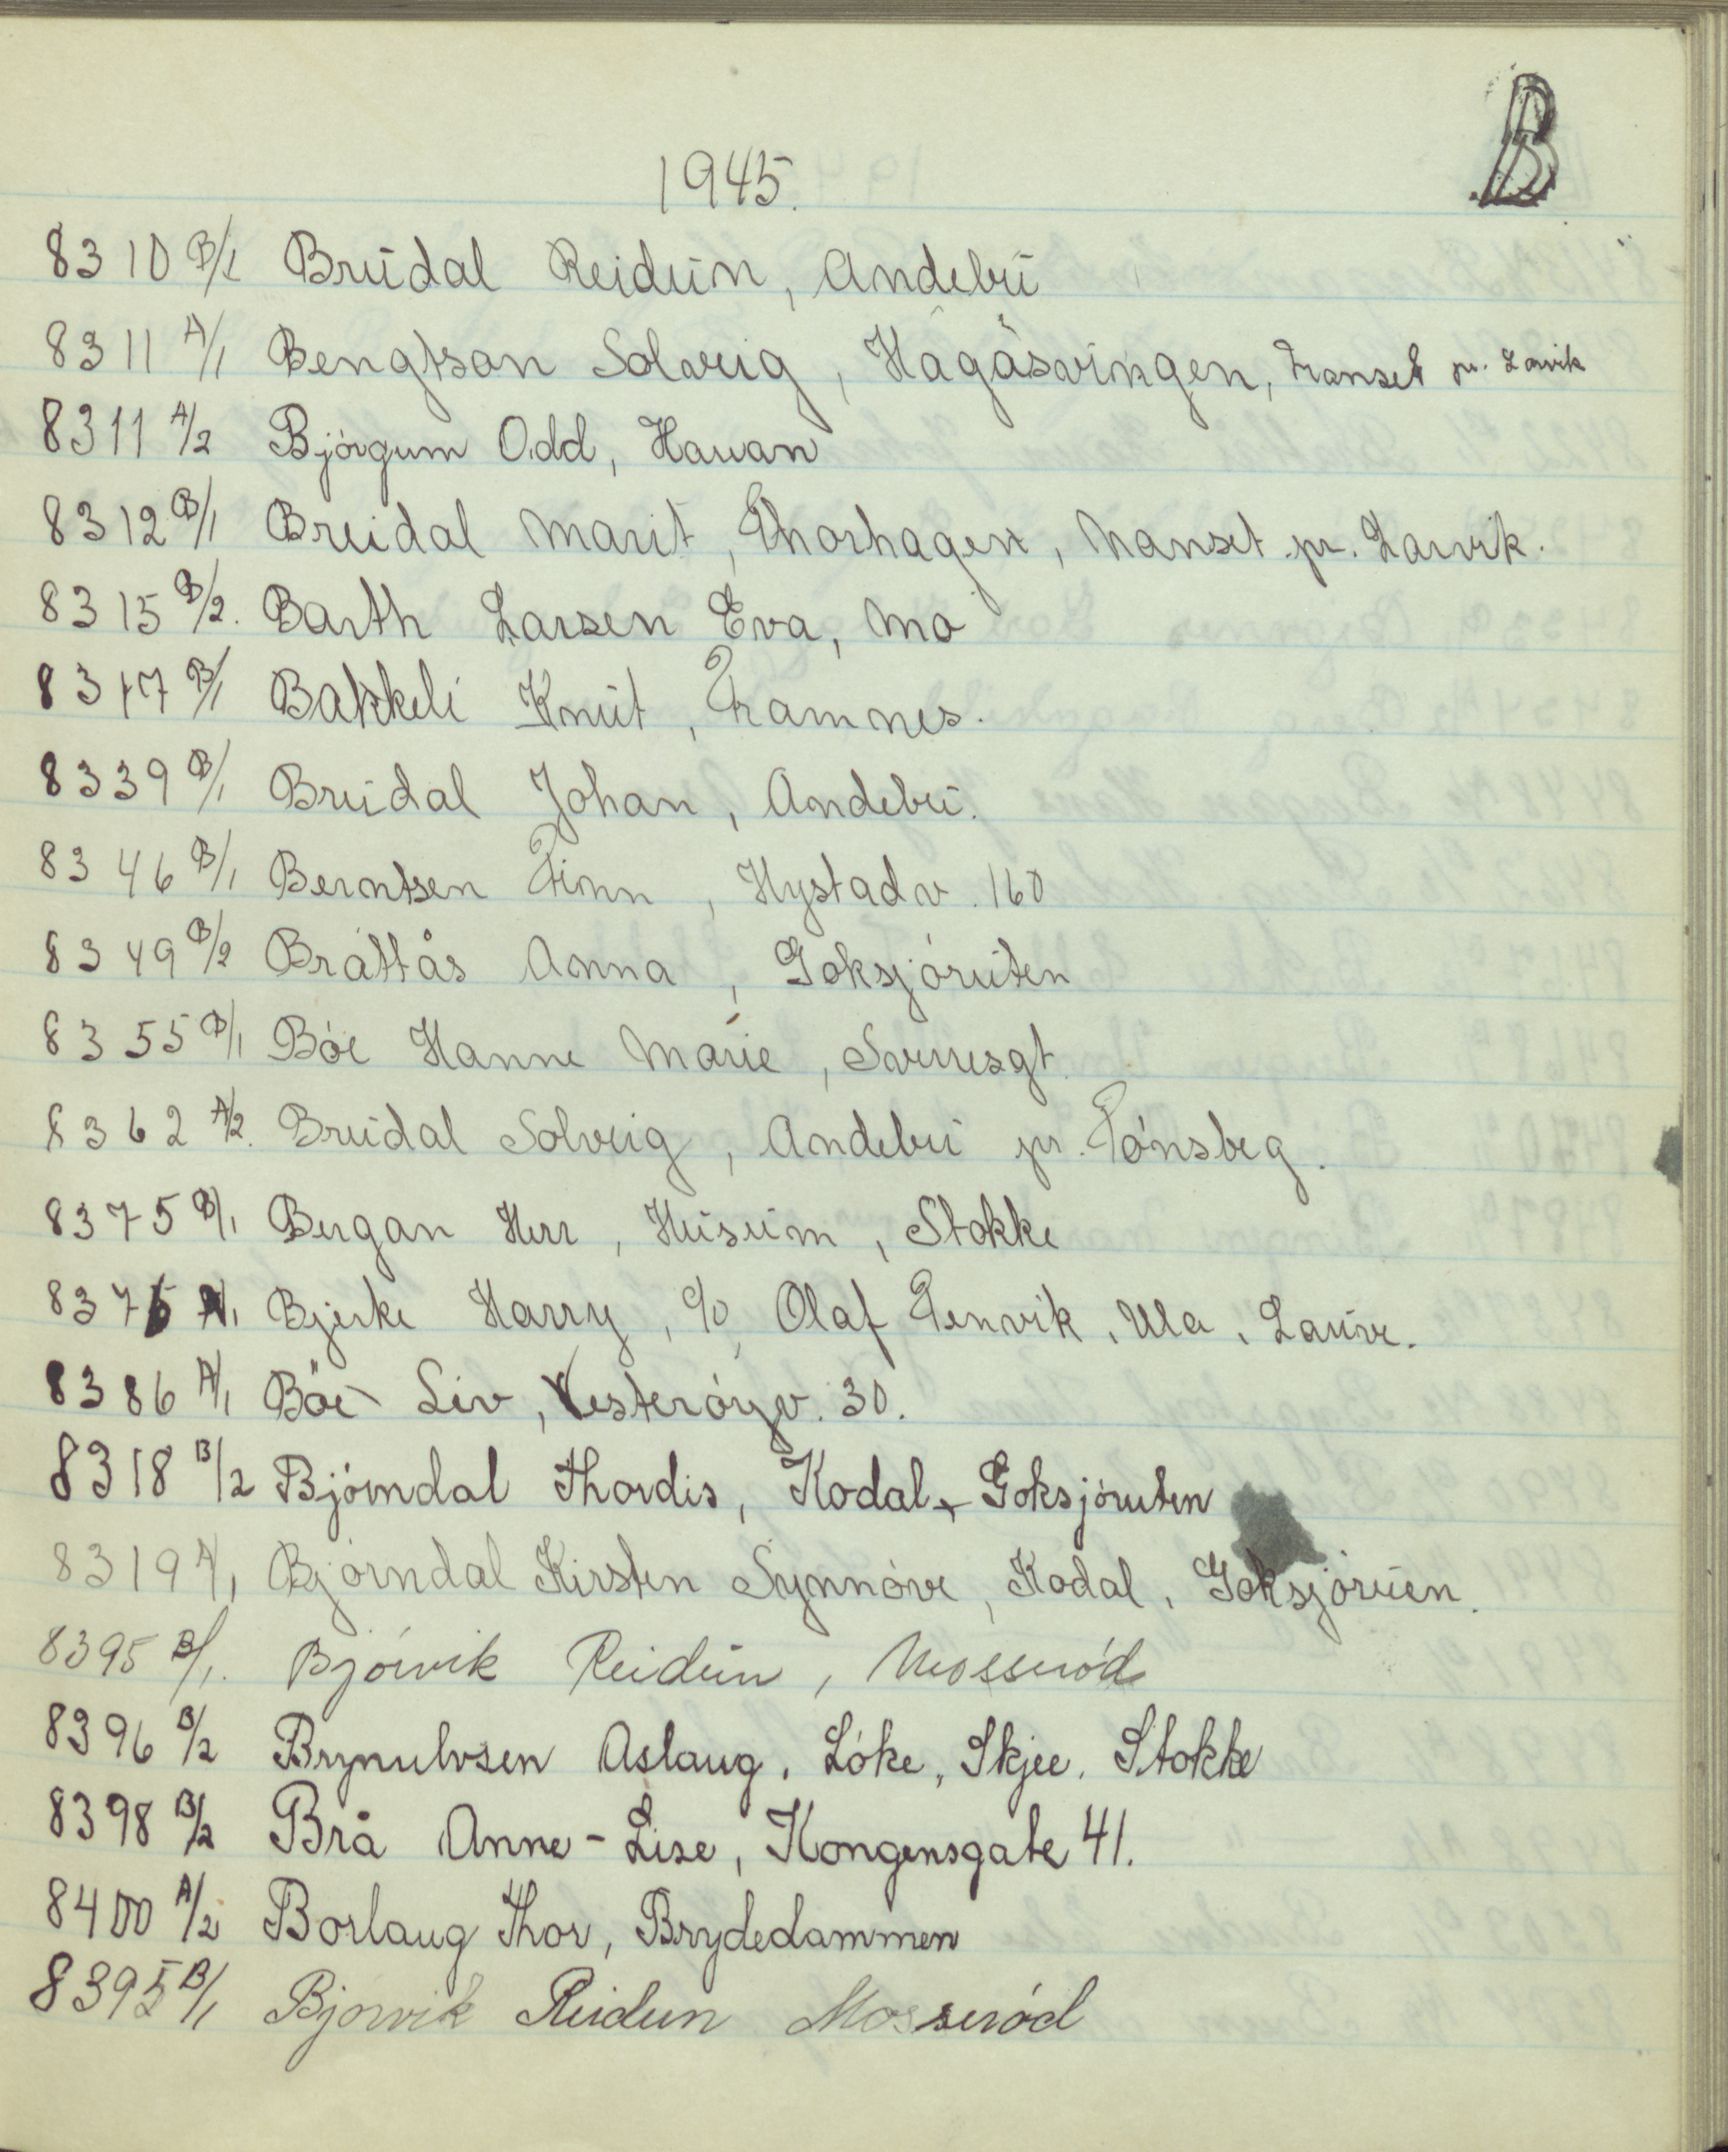 B
1945.
8310 B/1 Brūdal Reidūn, Andebū
8311 A/1 Bengtson Solveig, Hågåsvingen, Nanset pr. Larvik
8311 A/2 Bjórgum Odd, Havan
8312 B/1 Brūidal Marit, Thorhagen, Nanset pr. Larvik.
8315 B/2. Barth Larsen Eva, Mo
8317 B/1 Bakkeli Knūt, Framnes.
8339 B/1 Brūdal Johan, Andebū.
8346 B/1 Berntsen Finn, Hystadv. 160
8349 B/2 Bråttås Anna, Goksjórūten
8355 B/1 Bóe Hanne Marie, Sverresgt.
8362 A/2. Brūdal Solveig, Andebū pr. Tónsbeg.
8375 B/1 Bergan Herr, Hūsūm, Stokke
8376 A/1 Bjerke Harry, c/o, Olaf Fenvik, Ula, Laūve.
8386 A/1 Böe Liv, Vesteróyv. 30.
8318 B/2 Bjórndal Thordis, Kodal, Goksjóruten
8319 A/1 Bjórndal Kirsten Synnóve, Kodal, Goksjórūen.
8395 B/1. Bjórvik Reidūn, Mosseród
8396 B/2 Brynulvsen Aslaug, Lóke, Skjee, Stokke
8398 B/2 Brå Anne-Lise, Kongensgate 41.
8400 A/2 Borlaug Thor, Brydedammen
8395 B/1 Bjórvik Reidun Mosseród